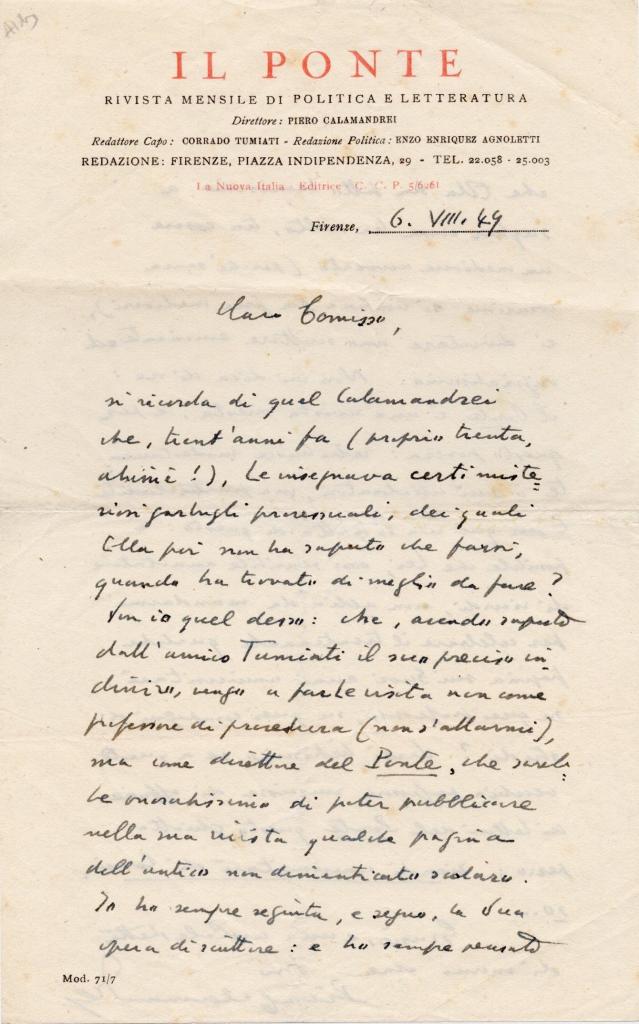 IL PONTE
RIVISTA MENSILE DI POLITICA E LETTERATURA
Direttore: PIERO CALAMANDREI
Redattore Capo: CORRADO TUMIATI - Redazione Politica: ENZO ENRIQUEZ AGNOLETTI
REDAZIONE: FIRENZE, PIAZZA INDIPENDENZA, 29 - TEL. 22.058 - 25.003
La Nuova Italia Editrice C. C. P. 5/6261
Firenze, 6. VIII. 49
Caro Comisso,
si ricorda di quel Calamandrei
che, trent'anni fa (proprio trenta,
ahimè!), Le insegnava certi miste=
riosi garbugli processuali, dei quali
Ella poi non ha saputo che farsi,
quando ha trovato di meglio da fare?
Son io quel desso: che, avendo saputo
dall'amico Tumiati il suo preciso in-
dirizzo, vengo a farle visita non come
professore di procedura (non s'allarmi),
ma come direttore del Ponte, che sareb=
be onoratissimo di poter pubblicare
nella sua rivista qualche pagina
dell'antico non dimenticato scolaro.
Io ho sempre seguita, e seguo, la Sua
opera di scrittore: e ho sempre pensato
Mod. 71/7